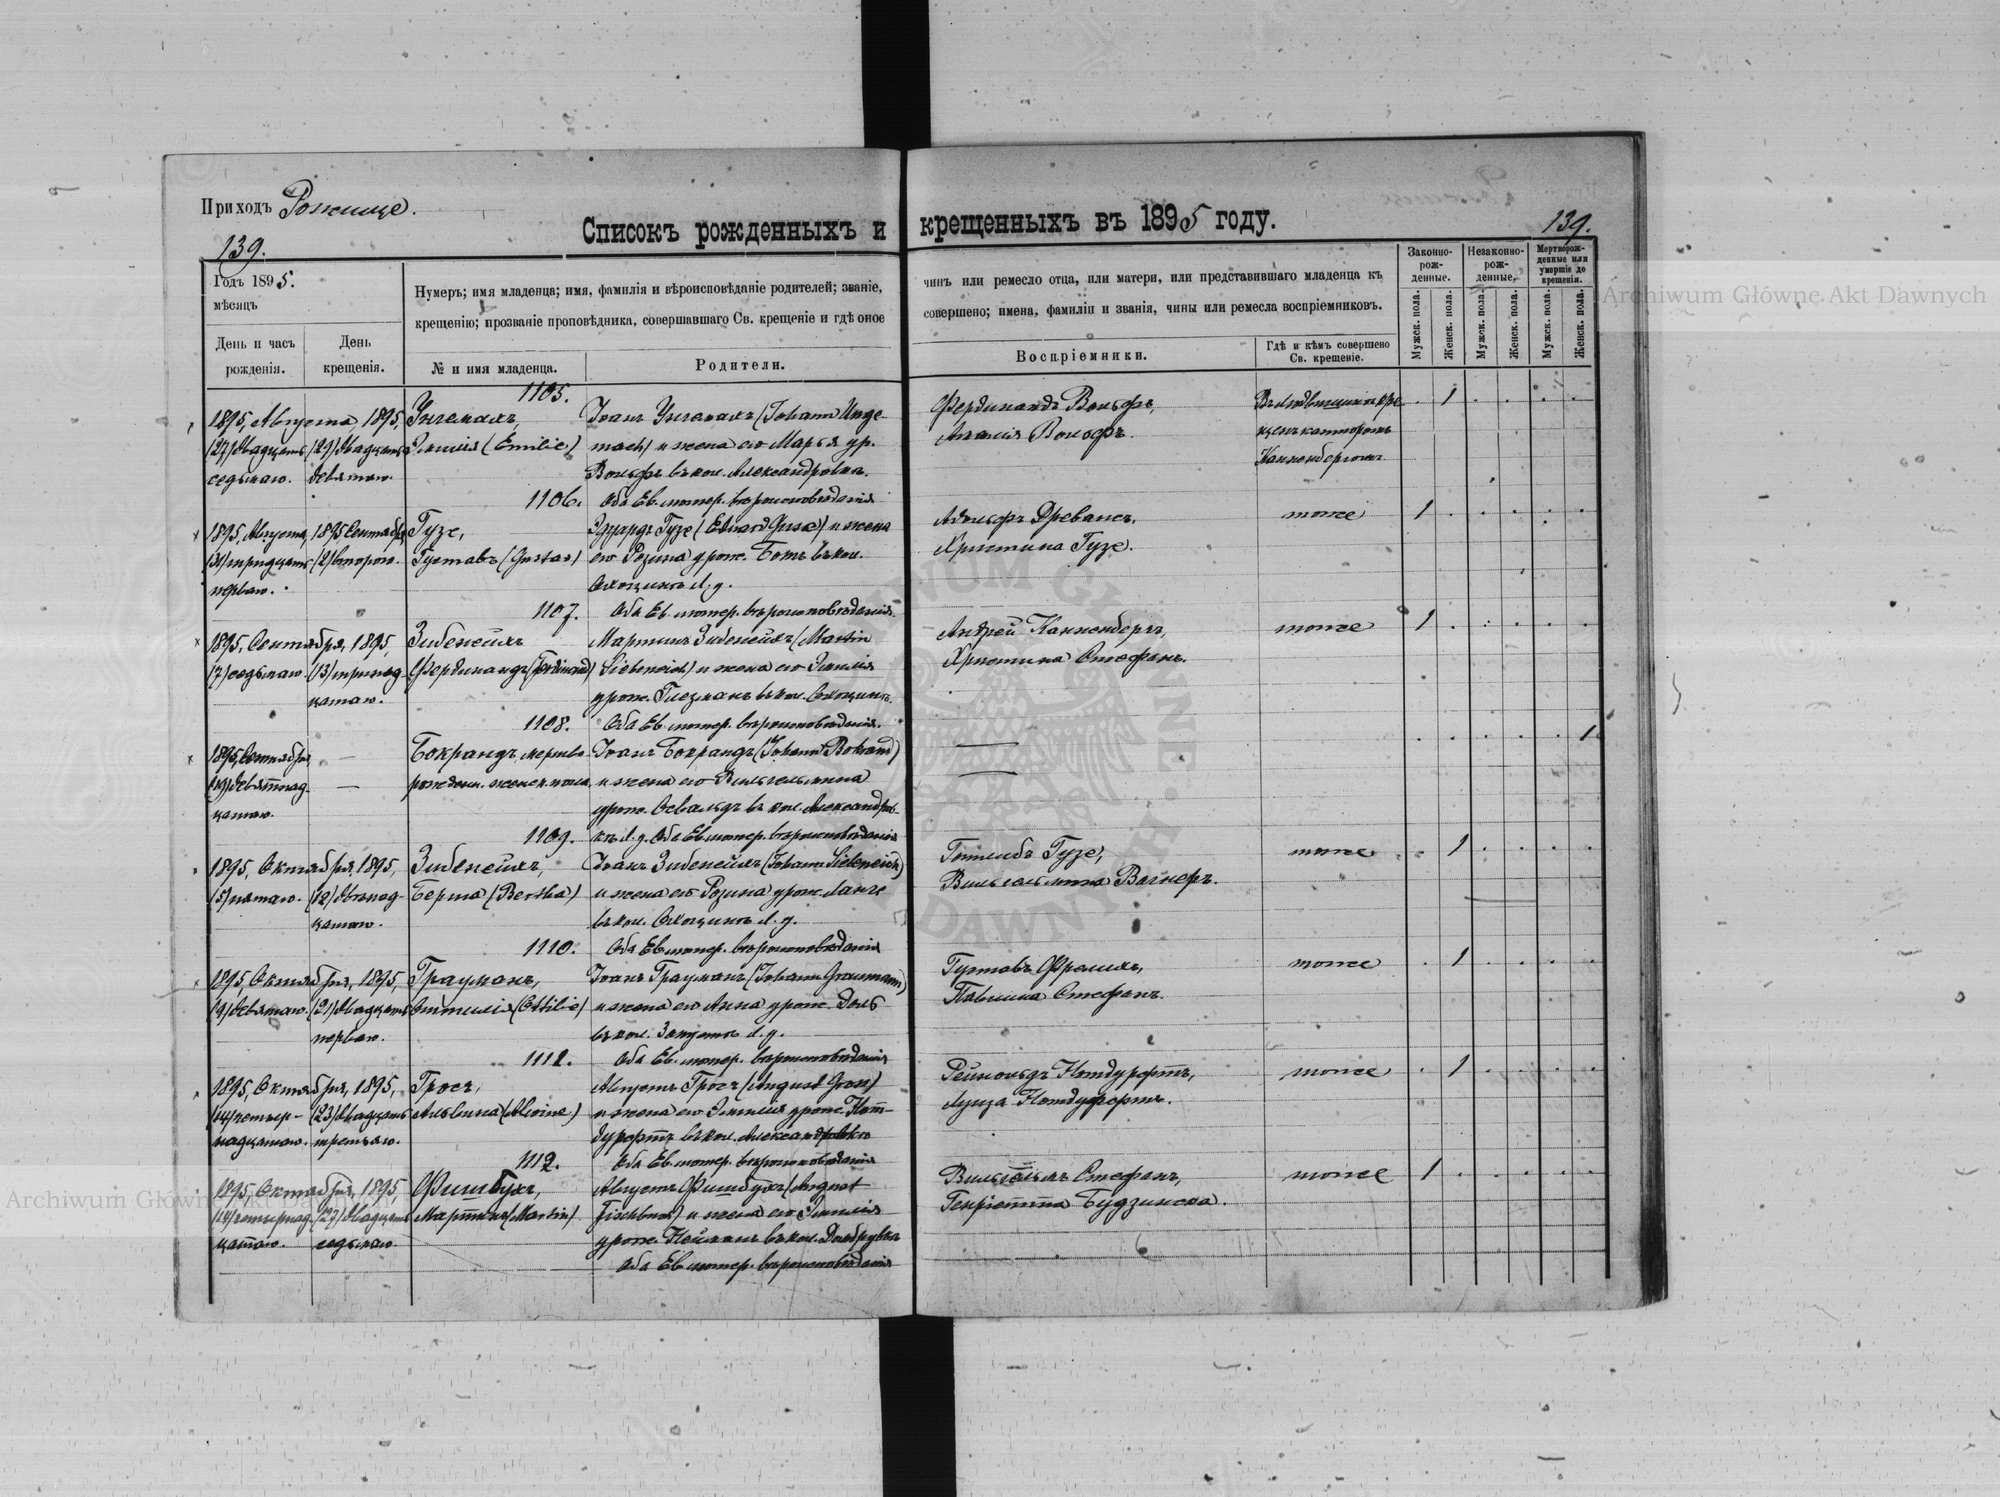 Приходъ Рожище.
Списокъ рожденныхъ и крещенныхъ въ 1895 году.
139.
139.
Годъ 1895.
мѣсяцъ
День и часъ рожденія.
День крещенія.
Нумеръ; имя младенца; имя, фамилія и вѣроисповѣданіе родителей; званіе,
крещенію; прозваніе проповѣдника, совершавшаго Св. крещеніе и гдѣ оное
№ и имя младенца.
Родители.
чинъ или ремесло отца, или матери, или представившаго младенца къ
совершено; имена, фамиліи и званія, чины или ремесла воспріемниковъ.
Воспріемники.
Гдѣ и кѣмъ совершено
Св. крещеніе.
Законно-
рож-
денные.
Незаконно-
рож-
денные.
Мертворож-
денные или
умершіе до
крещенія.
Мужск. пола.
Женск. пола.
Мужск. пола.
Женск. пола.
Мужск. пола.
Женск. пола.
1105.
1895, Августа, 1895,
(27) двадцать
седьмаго.
(29) двадцать
девятаго.
Унгемахъ,
Эмилія (Emilie)
Іоанъ Унгемахъ (Johann Unge-
mach) и жена его Марья ур.
Вольфъ въ кол. Александровка.
Оба Ев. лютер. вѣроисповѣданія
Фердинандъ Вольфъ,
Амалія Вольфъ.
канторомъ
Канненбергомъ
1
1106.
1895, Августа,
(31) тридцать
перваго.
1895 Сентября,
(2) второго.
Гузе,
Густавъ (Gustav)
Эдуардъ Гузе (Eduard Guse) и жена
его Розина урож. Ботъ въ кол.
л. д.
Оба Ев. лютер. вѣроисповѣданія.
Адольфъ Древансъ.
Христина Гузе.
тоже
1
1107.
1895, Сентября, 1895,
(7) седьмаго.
(13) тринад-
цатаго.
Зибенейхъ
Фердинандъ (Ferdinand)
Мартинъ Зибенейхъ (Martin
Siebeneich) и жена его Эмилія
урож. Глезманъ въ кол.
Оба Ев. лютер. вѣроисповѣданія.
Андрей Канненбергъ,
Христина Стефанъ.
тоже
1
1108.
1895, Сентября
(19) девятнад-
цатаго.
Бокрандъ мертво
рожден. женск. пола.
Іоанъ Бокрандъ (Johann Bokrand)
и жена его Вильгельмина
урож. Освальдъ въ кол. Александров-
къ л. д. Оба Ев. лютер. вѣроисповѣданія
1
1109.
1895, Октября, 1895,
(5) пятаго.
(12) двѣнад-
цатаго.
Зибенейхъ,
Берта (Bertha)
Іоанъ Зибенейхъ (Johann Siebeneich)
и жена его Розина урож. Ланге
въ кол. л. д.
Оба Ев. лютер. вѣроисповѣданія
Готлибъ Гузе,
Вильгельмина Вагнеръ.
тоже
1
1110.
1895, Октября, 1895,
(9) девятаго.
(21) двадцать
перваго.
Грауманъ,
Оттилія (Ottilie)
Іоанъ Грауманъ (Johann Graumann)
и жена его Анна урож. Доль
въ кол. л. д.
Оба Ев. лютер. вѣроисповѣданія
Густавъ Фрелихъ,
Павлина Стефанъ.
тоже
1
1111.
1895, Октября, 1895,
(14) четыр-
надцатаго.
(23) двадцать
третьяго.
Гросъ,
Альвина (Alvine)
Августъ Гросъ (August Gross)
и жена его Эмилія урож. Нот-
дурфтъ въ кол. Александровка
Оба Ев. лютер. вѣроисповѣданія
Рейнольдъ Нотдурфтъ,
Луиза Нотдурфтъ.
тоже
1
1112.
1895, Октября, 1895
(14) четырнад-
цатаго.
(27) двадцать
седьмаго.
Фишбухъ,
Мартинъ (Martin)
Августъ Фишбухъ (August
Fischbuch) и жена его Эмилія
урож. Нейманъ въ кол. Домбровка
Оба Ев. лютер. вѣроисповѣданія
Вильгельмъ Стефанъ,
Генріетта Будзинска.
тоже
1
Archiwum Główne Akt Dawnych
Archiwum Główne Akt Dawnych